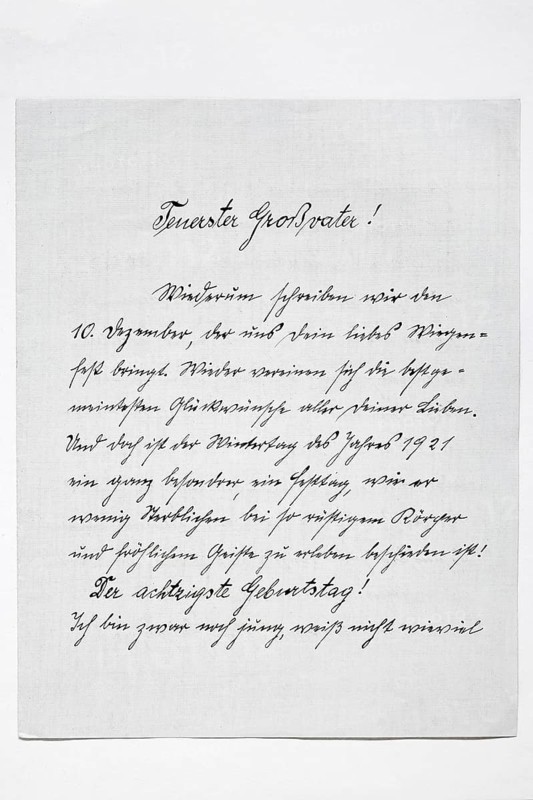 Teuerster Großvater!
Wiederum schreiben wir den
10. Dezember, der uns Dein liebes Wiegen=
fest bringt. Wieder vereinen sich die bestge=
meintesten Glückwünsche aller Deiner Lieben.
Und doch ist der Wintertag des Jahres 1921
ein ganz besondrer, ein Festtag, wie er
wenig Sterblichen bei so rüstigem Körper
und fröhlichem Geiste zu erleben beschieden ist!
Der achtzigste Geburtstag!
Ich bin zwar noch jung, weiß nicht wieviel